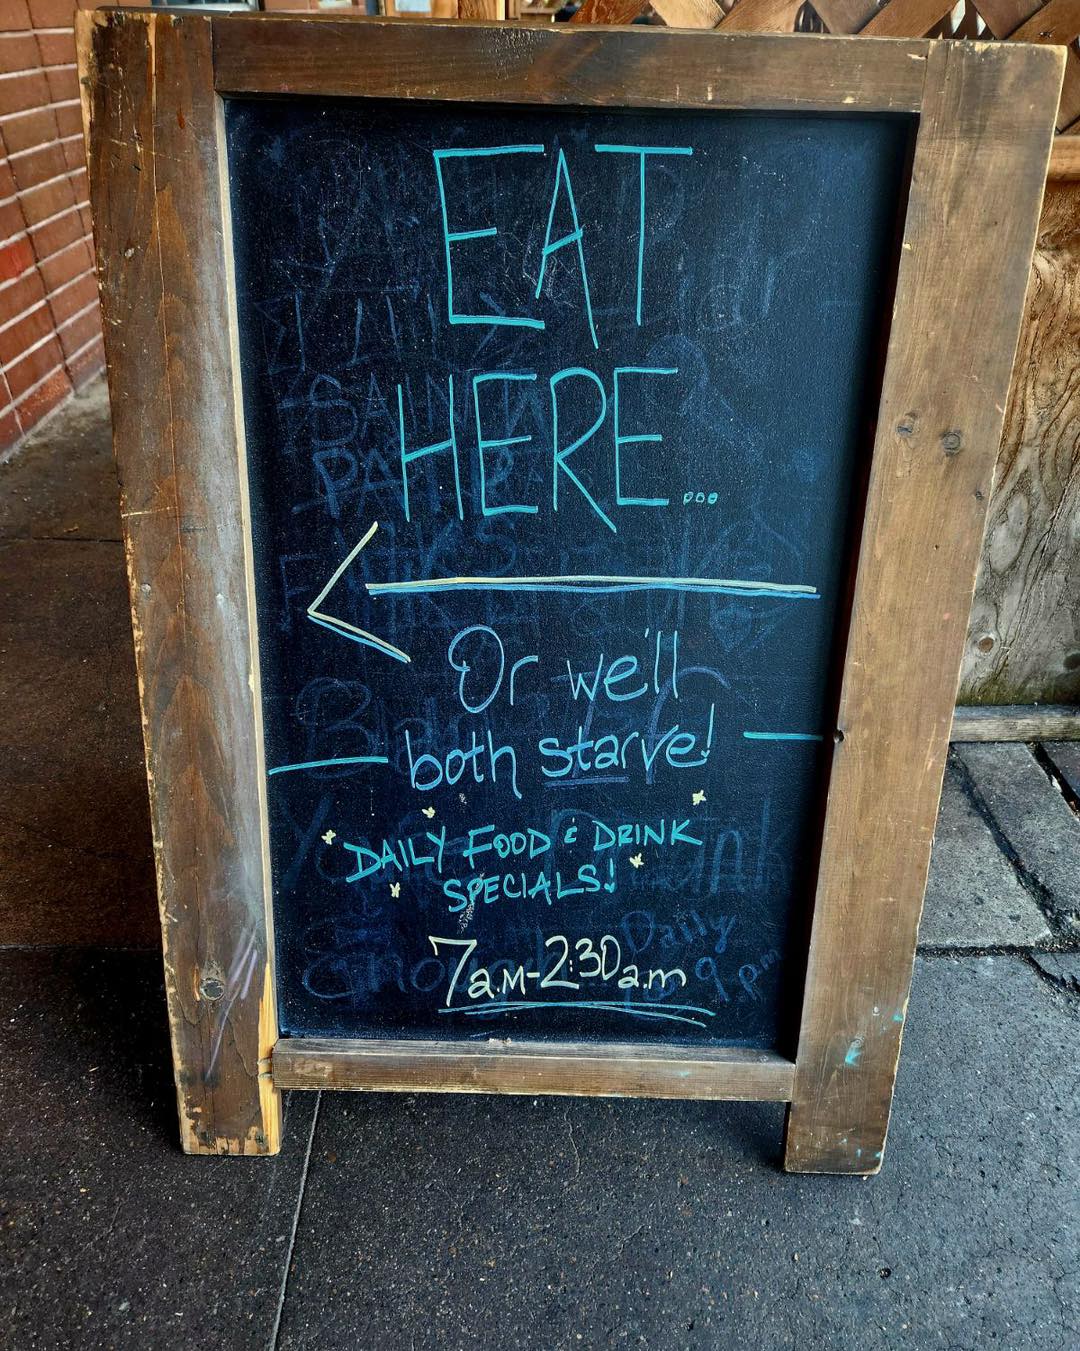 EAT
HERE...
Or we'll
both starve!
DAILY FOOD & DRINK
SPECIALS!
7a.M-2:30a.m
Daily
9 p.m